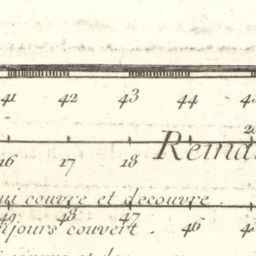 41 42 43 44
20
16 17 18 Rema
au couvre et decouvre.
49 48 47 46
jours couvert.